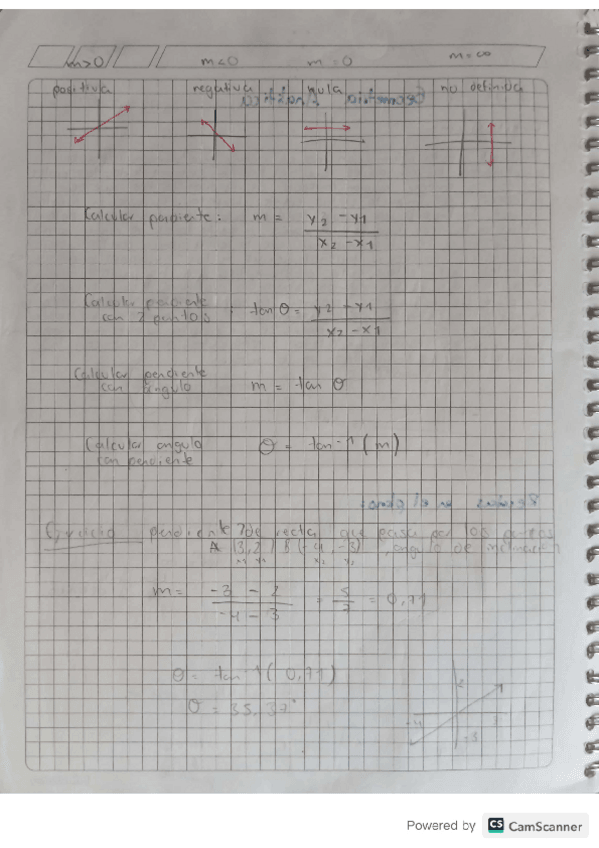 m>0 m<0 m=0 m=∞
positiva negativa nula no definida
Calcular pendiente: m = y2 - y1
x2 - x1
Calcular pendiente
con 2 puntos : tan θ = y2 - y1
x2 - x1
Calcular pendiente
con angulo m = tan θ
Calcular angulo θ = tan-1 (m)
con pendiente
Ejercicio pendiente de recta que pasa por los puntos
A (3,2) B (-4,-3) , angulo de inclinación
x1 y1 x2 y2
m= -3 - 2 = 5 = 0,71
-4 - 3 7
θ = tan-1 ( 0,71)
θ = 35.37°
2
-4 3
-3
Powered by CS CamScanner